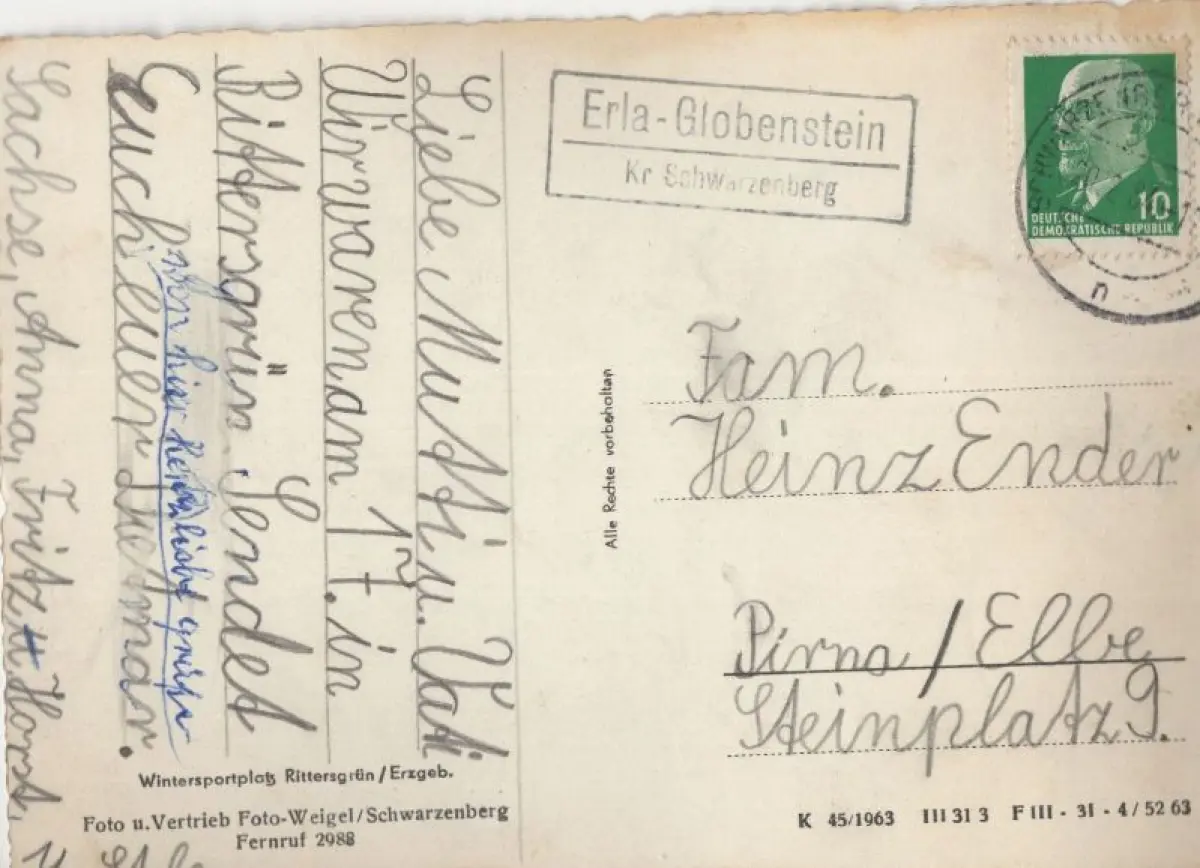 Liebe Mutti u. Vati
Wir waren am 17. in
Rittersgrün. Sendet
Euch euer Dietmar.
von hier herzlichst grüßen
Sachse, Anna, Fritz Horst,
Wintersportplatz Rittersgrün/Erzgeb.
Foto u. Vertrieb Foto-Weigel/Schwarzenberg
Fernruf 2988
Alle Rechte vorbehalten
Erla-Globenstein
Kr Schwarzenberg
10
DEUTSCHE
DEMOKRATISCHE REPUBLIK
Fam.
Heinz Ender
Pirna/Elbe
Steinplatz 9.
K 45/1963 III 31 3 F III - 31 - 4/52 63